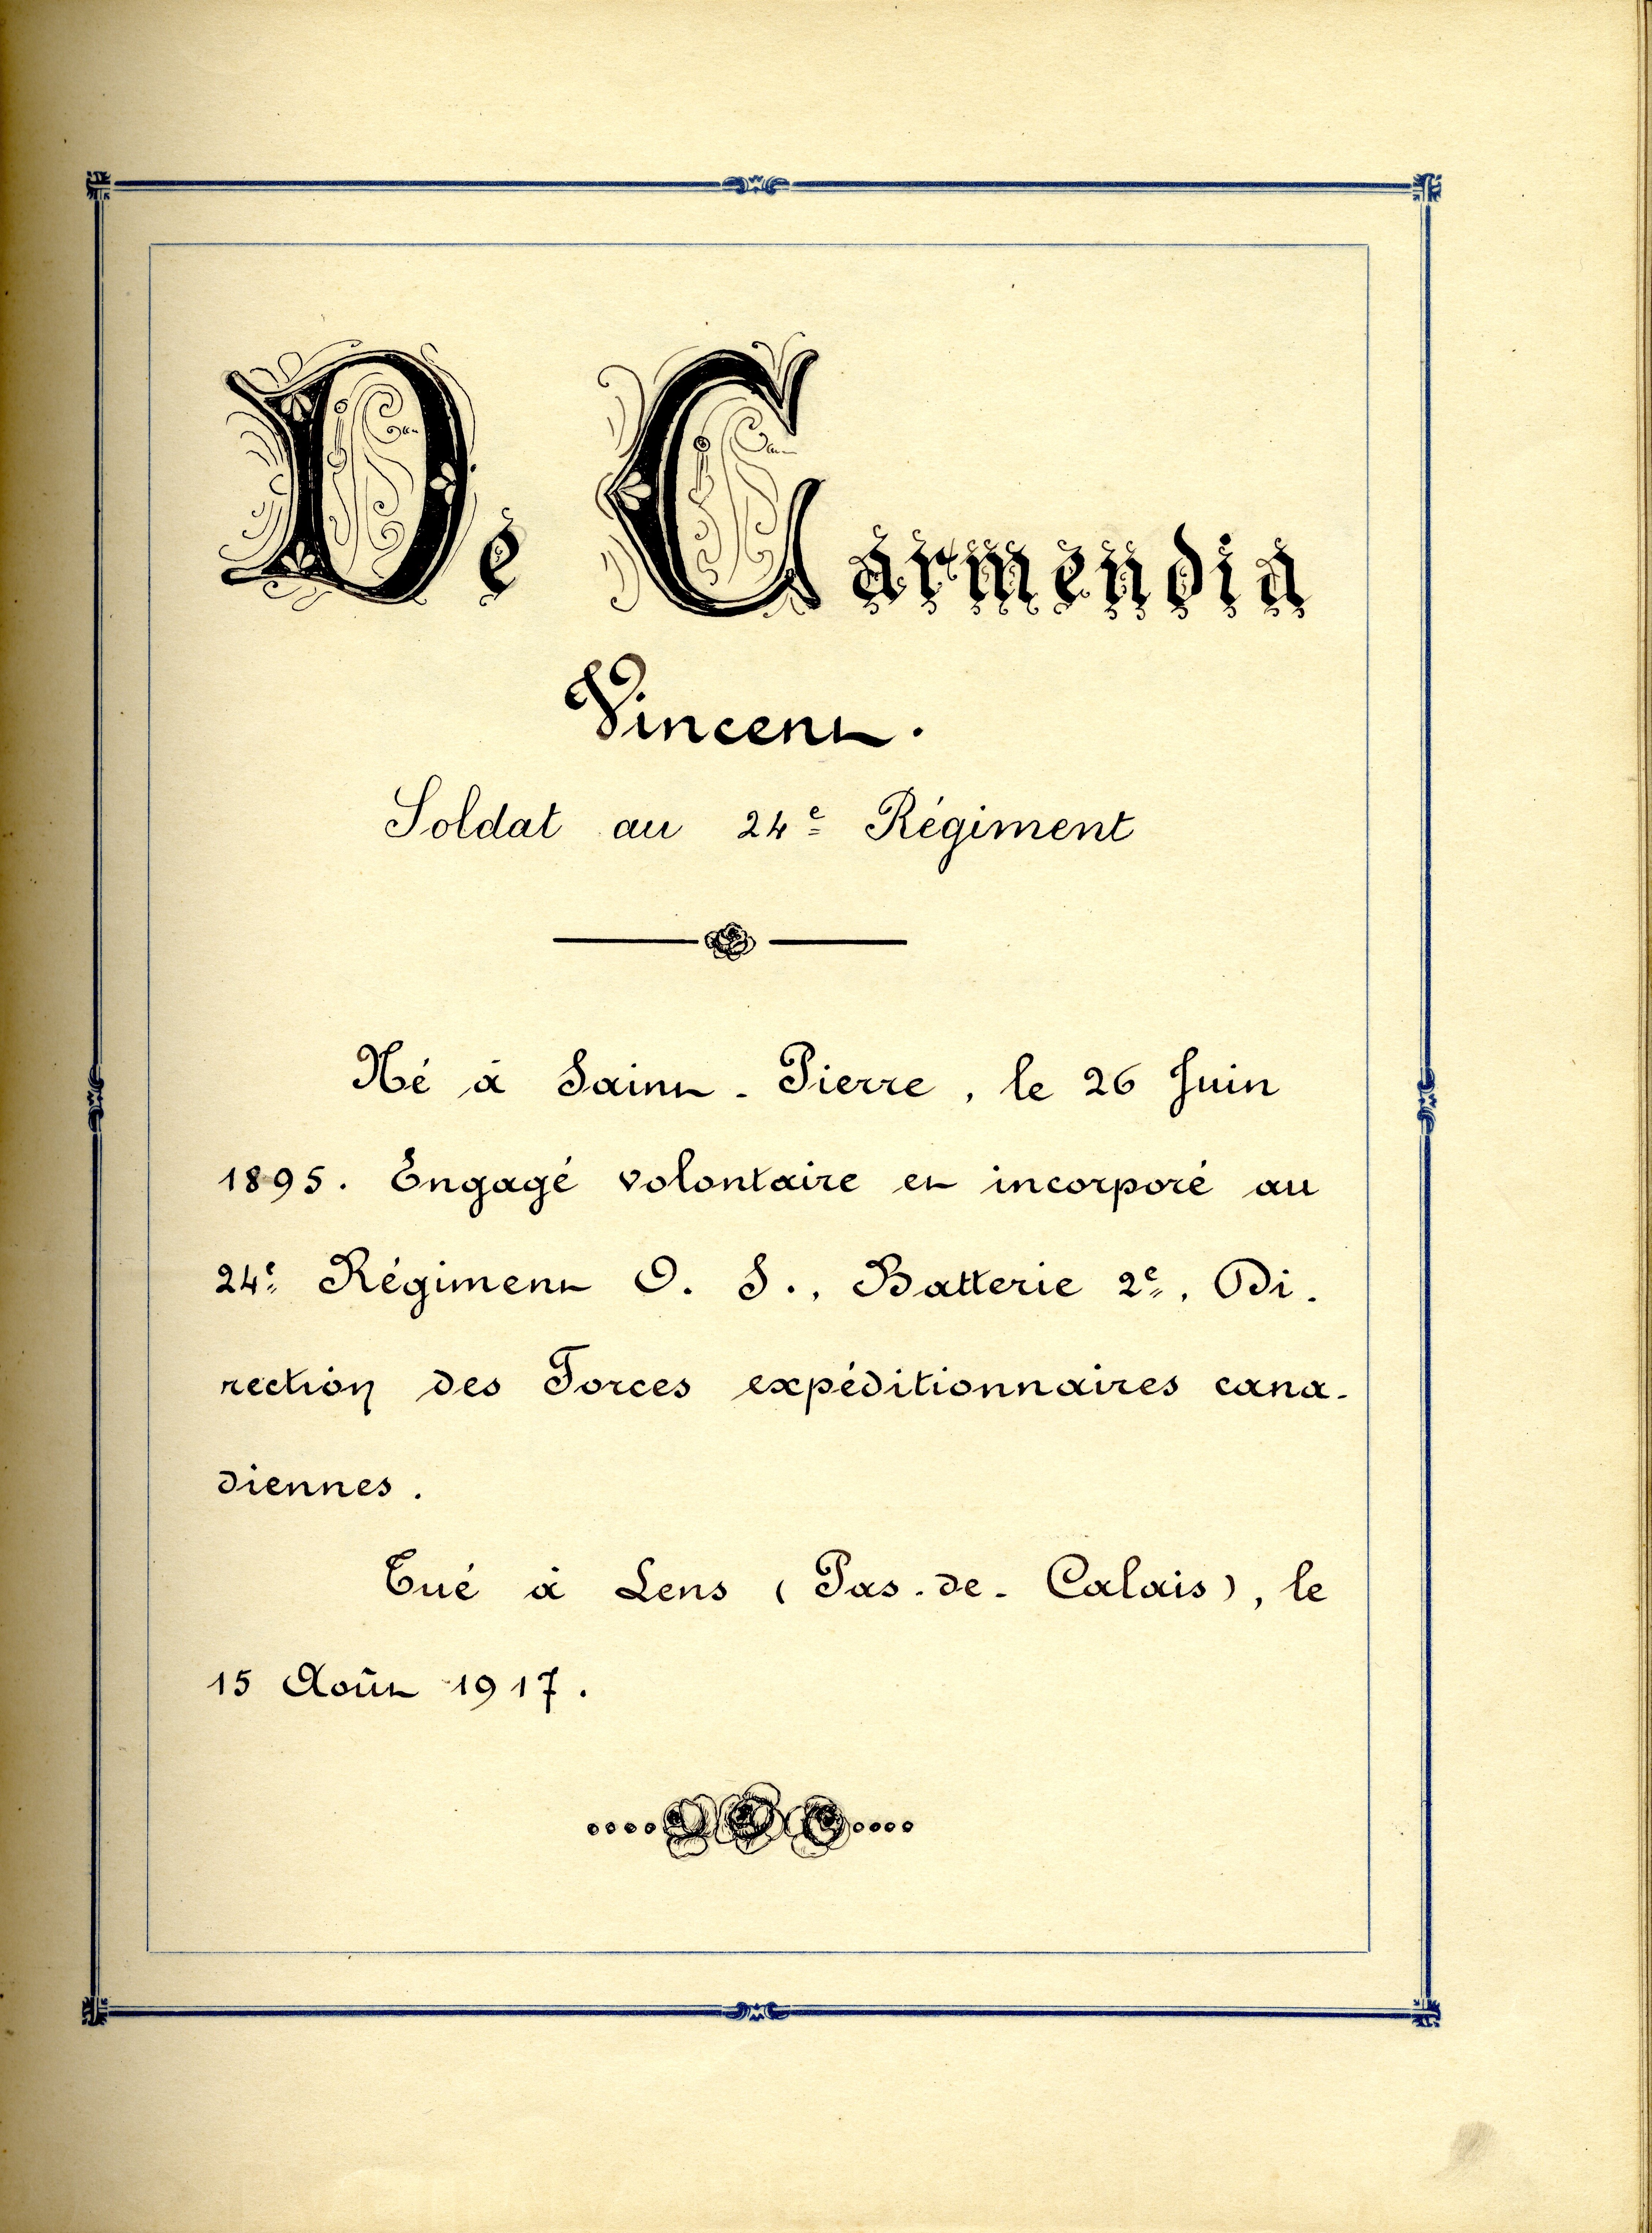 De Garmendia
Vincent.
Soldat au 24e Régiment
Né à Saint-Pierre, le 26 Juin
1895. Engagé volontaire et incorporé au
24e Régiment O. S., Batterie 2e, Di-
rection des Forces expéditionnaires cana-
diennes.
Tué à Lens (Pas-de-Calais), le
15 Août 1917.